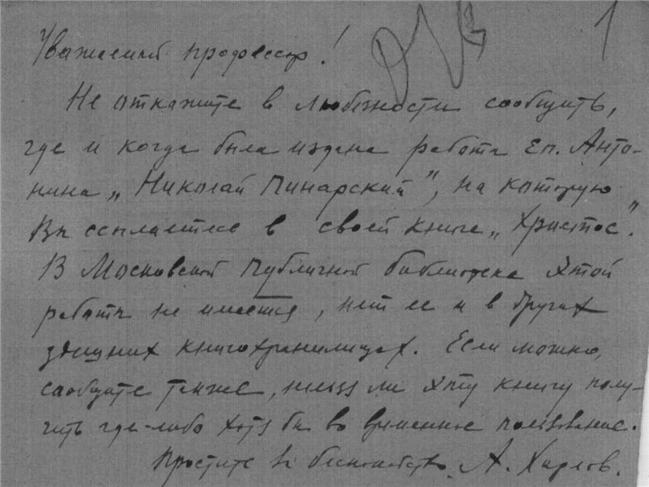 1
Уважаемый профессор!
Не откажите в любезности сообщить,
где и когда была издана работа Еп. Анто-
нина „Николай Пинарский", на которую
Вы ссылаетесь в своей книге „Христос".
В Московской публичной библиотеке этой
работы не имеется, нет ее и в других
здешних книгохранилищах. Если можно,
сообщите также, нельзя ли эту книгу полу-
чить где-либо хотя бы во временное пользование.
Простите за беспокойство. А.